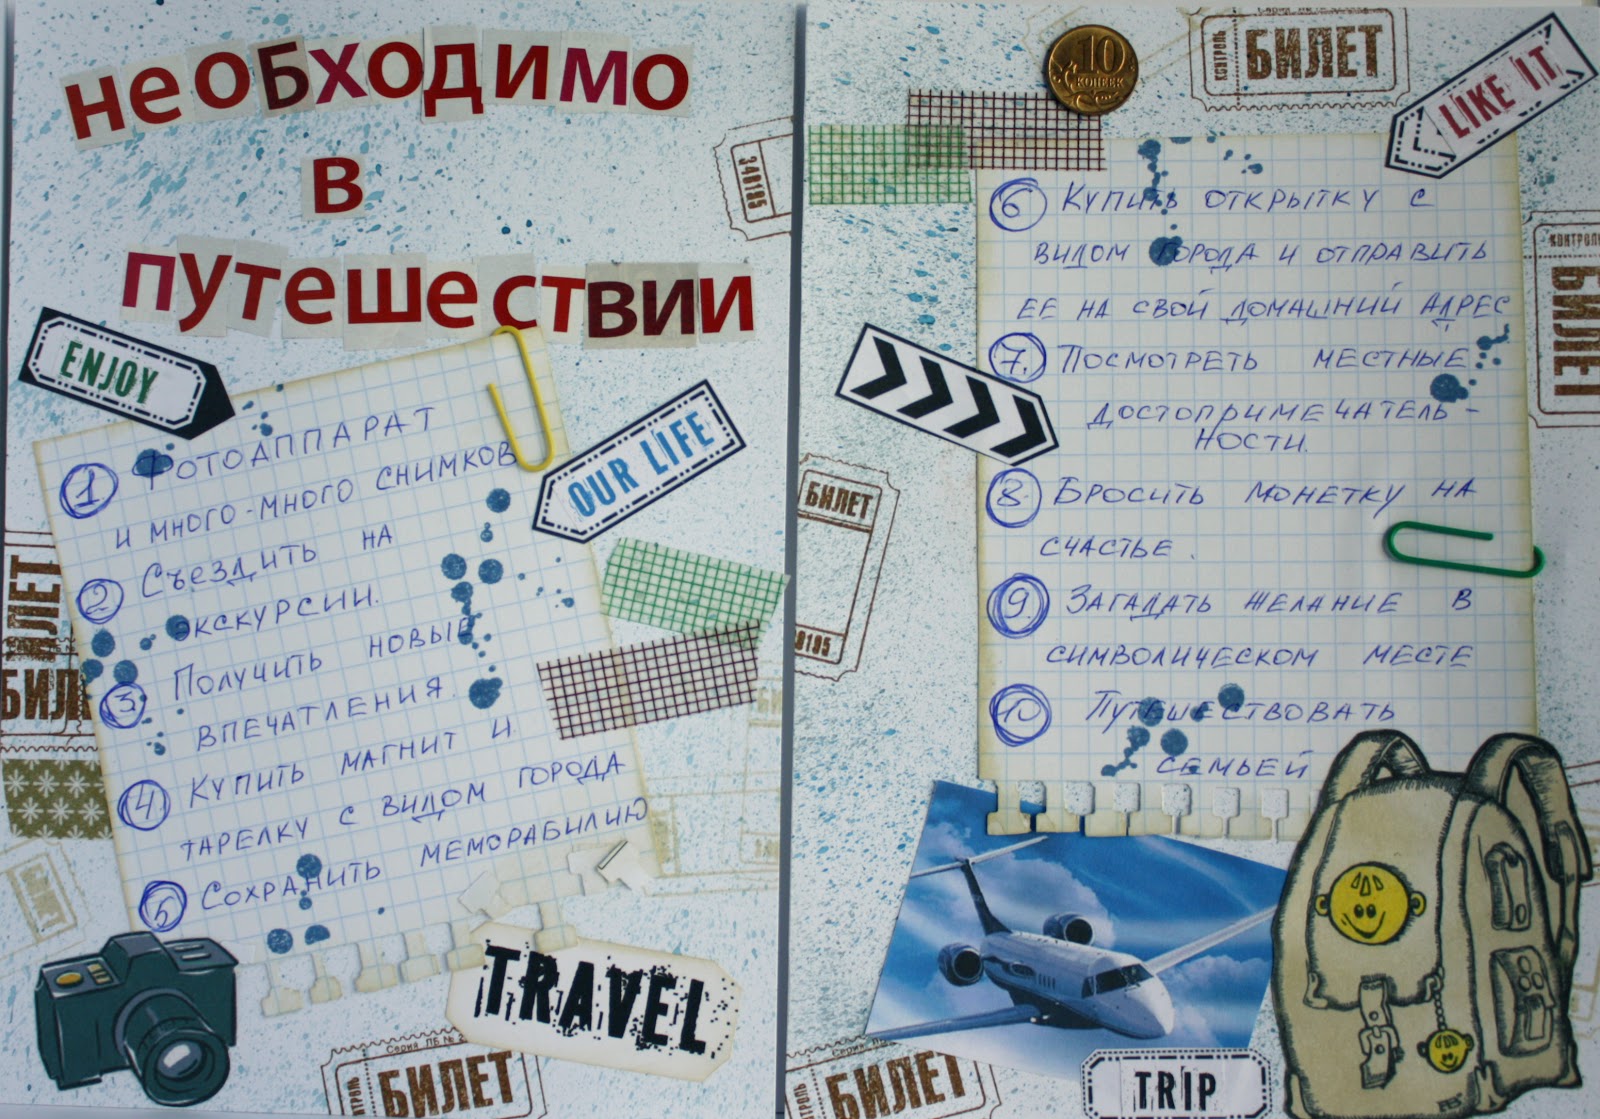 необходимо
в
путешествии
ENJOY
OUR LIFE
1. Фотоаппарат
и много-много снимков
2 Съездить на
экскурсии.
3. Получить новые
впечатления.
4. Купить магнит и
тарелку с видом города
5 Сохранить меморабилию
TRAVEL
БИЛЕТ
БИЛЕТ
Серия ПБ №
КОНТРОЛЬ
БИЛЕТ
348195
10
КОПЕЕК
КОНТРОЛЬ
БИЛЕТ
LIKE IT
6 Купить открытку с
видом города и отправить
ее на свой домашний адрес
7. Посмотреть местные
достопримечатель-
ности.
8. Бросить монетку на
счастье.
9. Загадать желание в
символическом месте
10 Путешествовать
семьей
КОНТРОЛЬ
БИЛЕТ
БИЛЕТ
8195
БИЛЕТ
TRIP